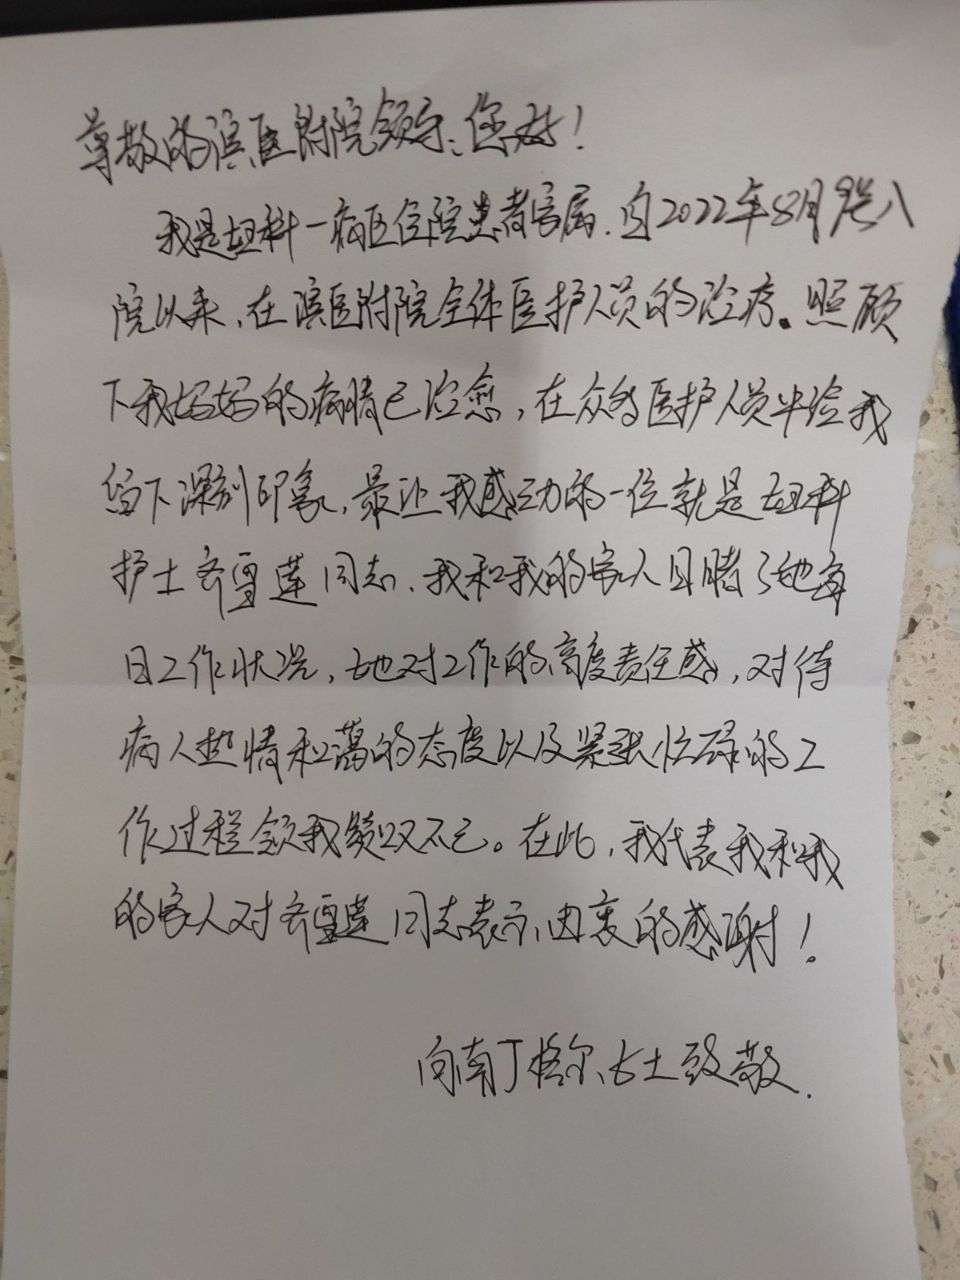 尊敬的滨医附院领导、您好！
我是妇科一病区住院患者家属．自2022年8月9日入
院以来、在滨医附院全体医护人员的治疗。照顾
下我妈妈的病情已治愈，在众多医护人员中给我
留下深刻印象，最让我感动的一位就是妇科
护士齐雪莲同志．我和我的家人目睹了她每
日工作状况，她对工作的高度责任感，对待
病人热情和蔼的态度以及紧张忙碌的工
作过程令我赞叹不已。在此，我代表我和我
的家人对齐雪莲同志表示由衷的感谢！
向南丁格尔女士致敬．